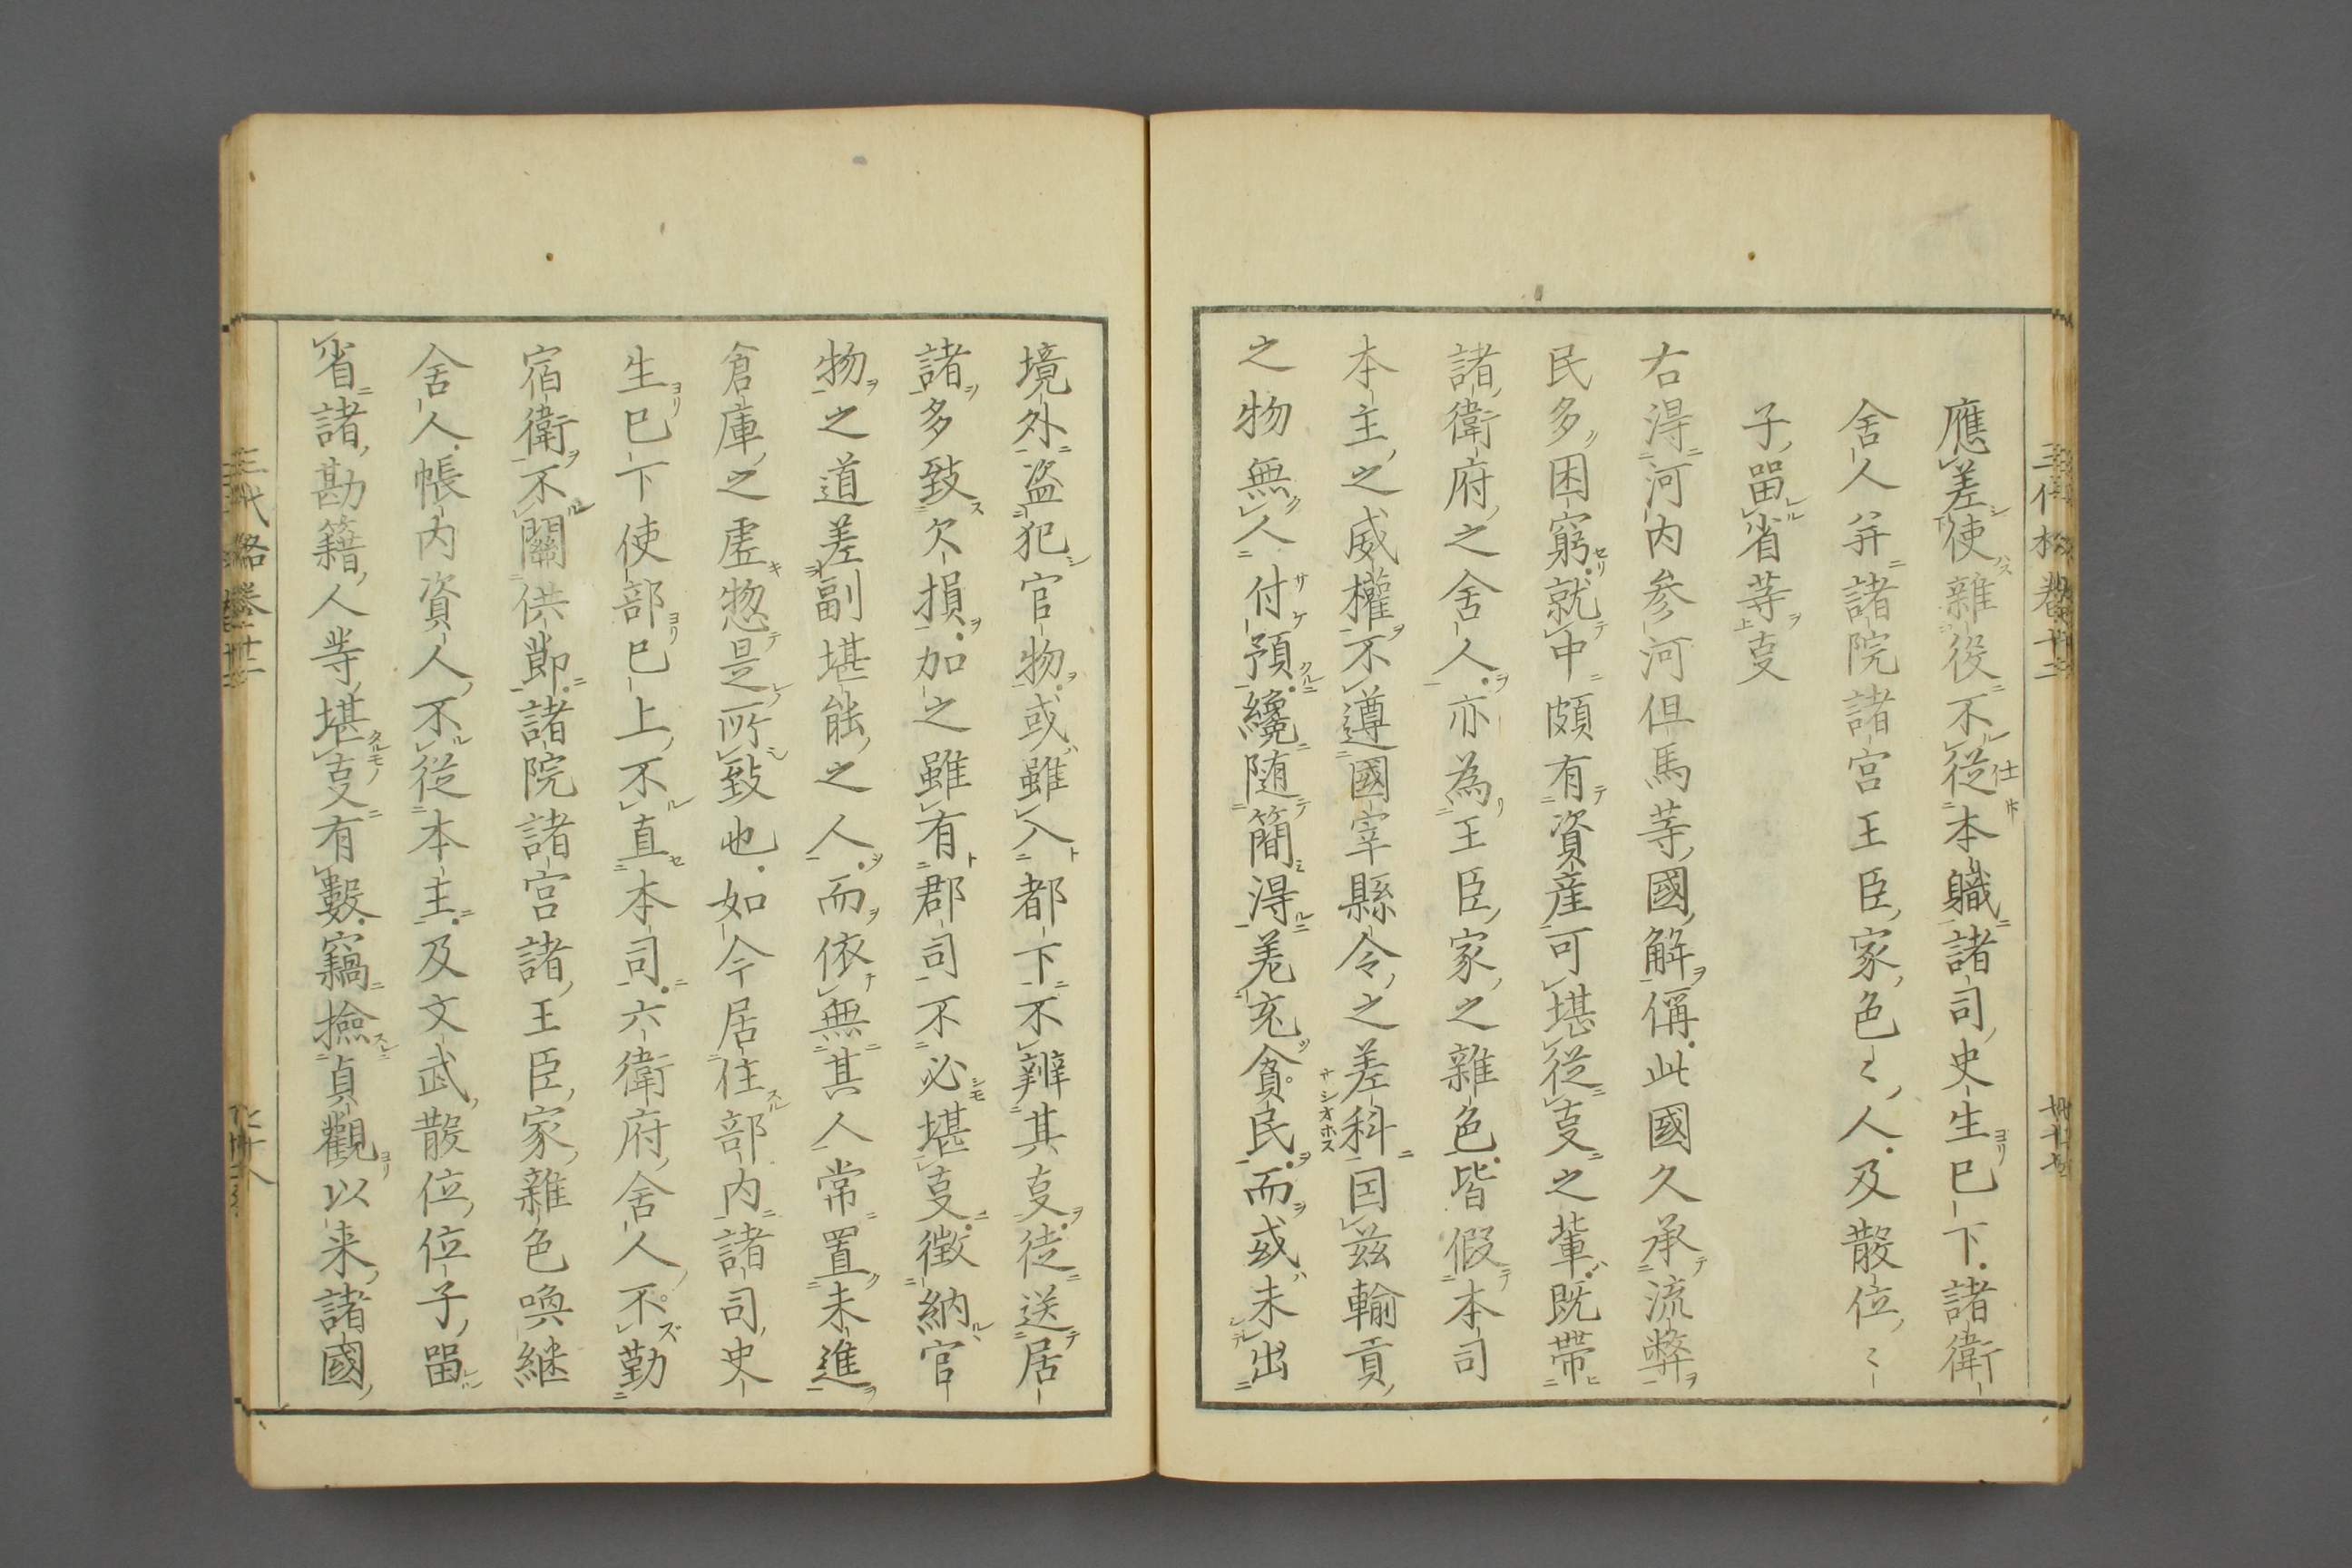 應差使雜役不従本職諸司史生已下諸衛
舍人并諸院諸宮王臣家色〻人及散位〻
子畱省䓁㕝
右得河内参河但馬䓁國解偁此國久承流弊
民多困窮就中頗有資産可堪従㕝之輩既帶
諸衛府之舍人亦為王臣家之雜色皆假本司
本主之威權不遵國宰縣令之差科因茲輸貢
之物無人付預纔随簡得差充貪民而或未出
境外盗犯官物或雖入都下不辨其㕝徒送居
諸多致欠損加之雖有郡司不必堪㕝徴納官
物之道差副堪能之人而依無其人常置未進
倉庫之虚惣是所致也如今居住部内諸司史
生已下使部已上不直本司六衛府舍人不勤
宿衛不關供節諸院諸宮諸王臣家雜色喚継
舍人帳内資人不従本主及文武散位位子畱
省諸勘籍人䓁堪㕝有數竊撿貞觀以来諸國